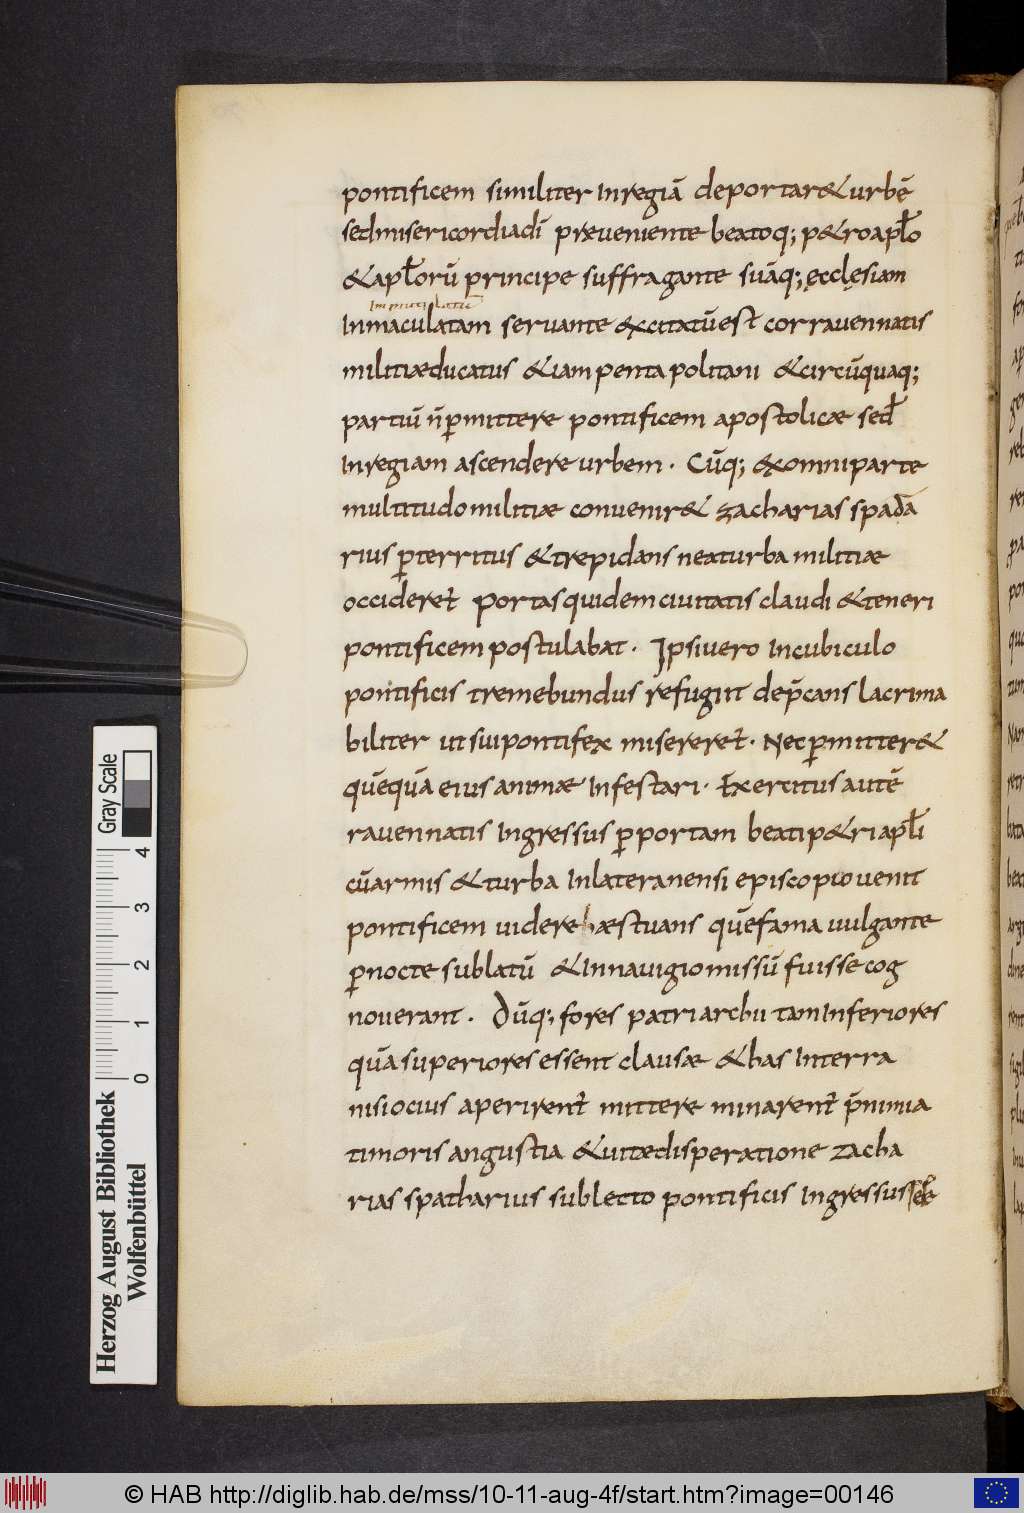 pontificem similiter Inregiā deportar& urbē
sed misericordia dī præveniente beatoq; p&ro apło
& apłorū principe suffragante suāq; ęcclęsiam
Inmutilatū
Inmaculatam servante excitatū est cor ravennatis
militiæ ducatus & iam pentapolitani & circūquaq;
partiū n̄ ꝑmittere pontificem apostolicæ sed̄
In regiam ascendere urbem. Cūq; ex omni parte
multitudo militiæ convenir& zacharias spada
rius ꝑterritus & trepidans ne a turba militiæ
occideret portas quidem civitatis claudi & teneri
pontificem postulabat. Ipsi vero In cubiculo
pontificis tremebundus refugiit dep̄cans lacrima
biliter ut sui pontifex misereret. Nec ꝑmitter&
quēquā eius animæ Infestari. Exercitus autē
ravennatis Ingressus ꝑ portam beati p&ri apłi
cū armis & turba In lateranensi episcopio venit
pontificem videre hæstuans quē fama vulgante
ꝑ nocte sublatū & In navigio missū fuisse cog
noverant. Dūq; fores patriarchii tam Inferiores
quā superiores essent clausæ & has In terra
nisi ocius aperirent mittere minarent p̄ nimia
timoris angustia & vitæ disperatione zacha
rias spatharius sub lecto pontificis Ingressus
Gray Scale
0 1 2 3 4
Herzog August Bibliothek
Wolfenbüttel
© HAB http://diglib.hab.de/mss/10-11-aug-4f/start.htm?image=00146